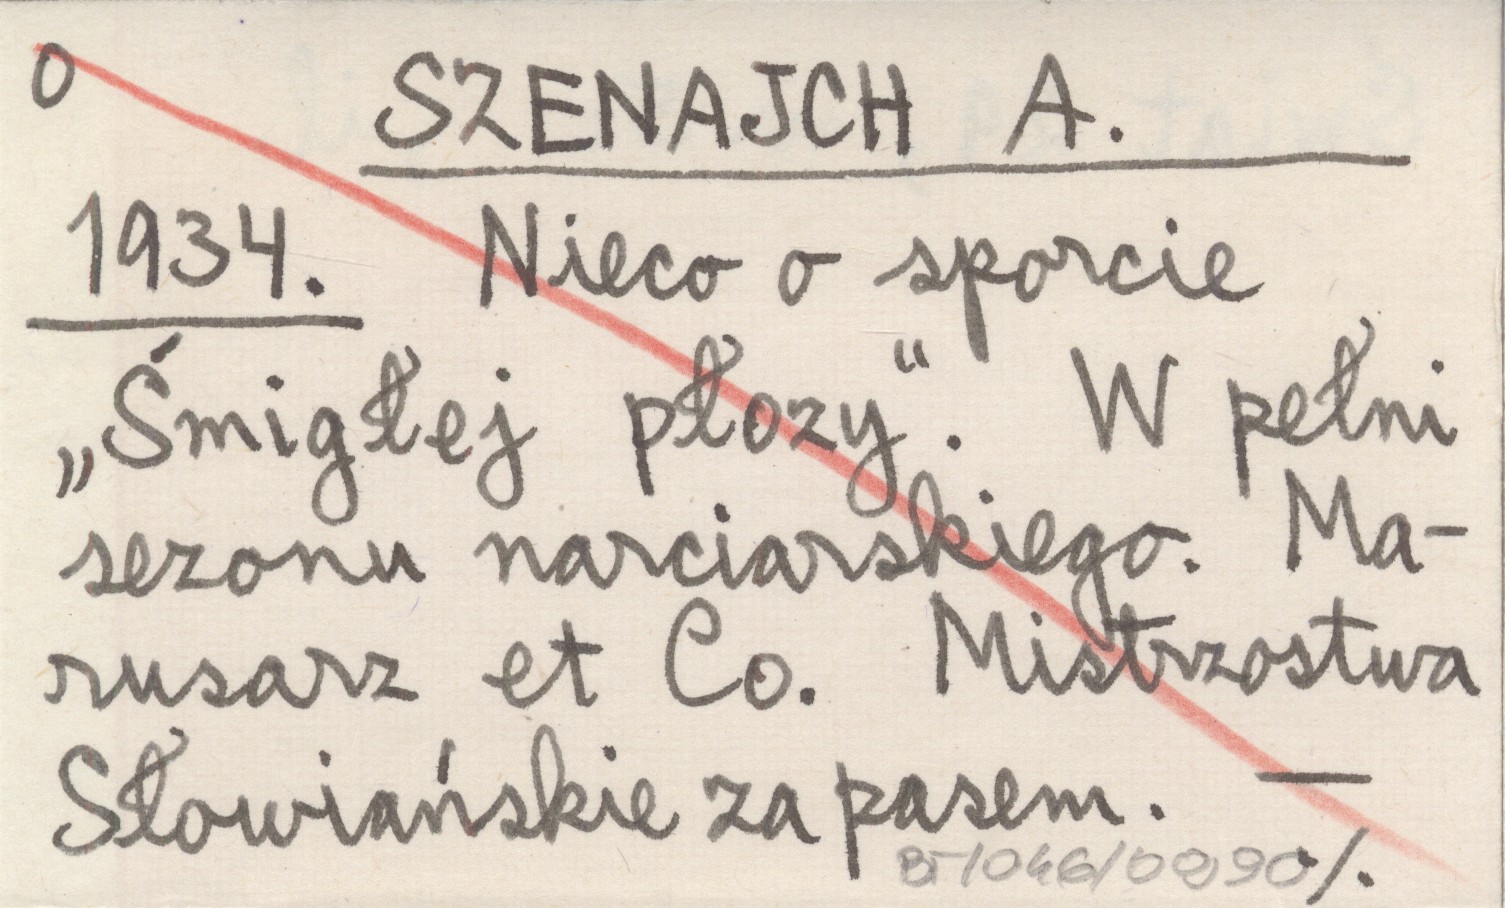 0
SZENAJCH A.
1934. Nieco o sporcie
„Śmigłej płozy“. W pełni
sezonu narciarskiego. Ma-
rusarz et Co. Mistrzostwa
Słowiańskie za pasem. —
./.